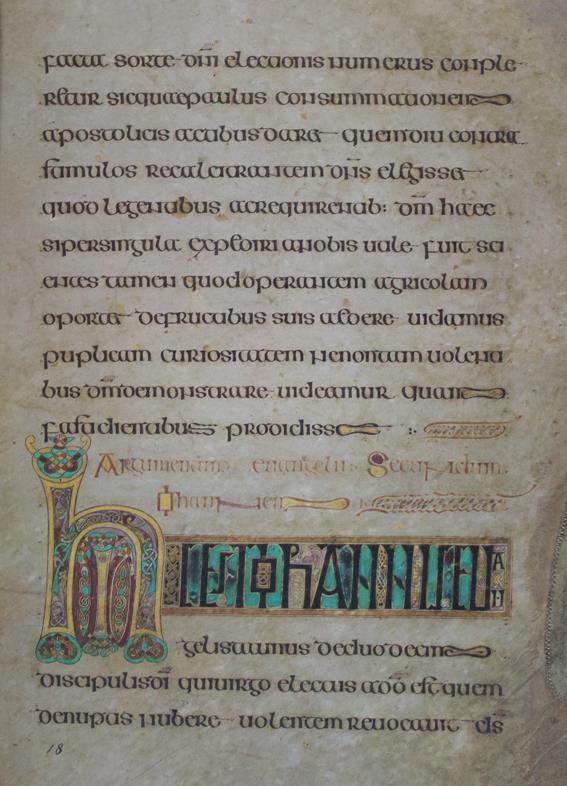 facta sorte dni electionis numerus conple
retur sicutae paulus consummationem
apostolicis actibus daret quem diu contra
famulos recalcitrantem dns elegisset
quod legentibus ac requirentib: dm haec
si per singula expediri a nobis uale fuit sci
entes tamen quod operantem agricolam
oportet de fructibus suis aedere uidamus
puplicam curiositatem ne non tam uolenti
bus dm demonstrare uideamur quam
fastidientibus prodidisse
Argumentum euangelii Secundum
Iohannen
hic est iohannis euan
gelista unus de duodecim
discipulis di qui uirgo electus a do est quem
de nuptis nubere uolentem reuocauit ds
18